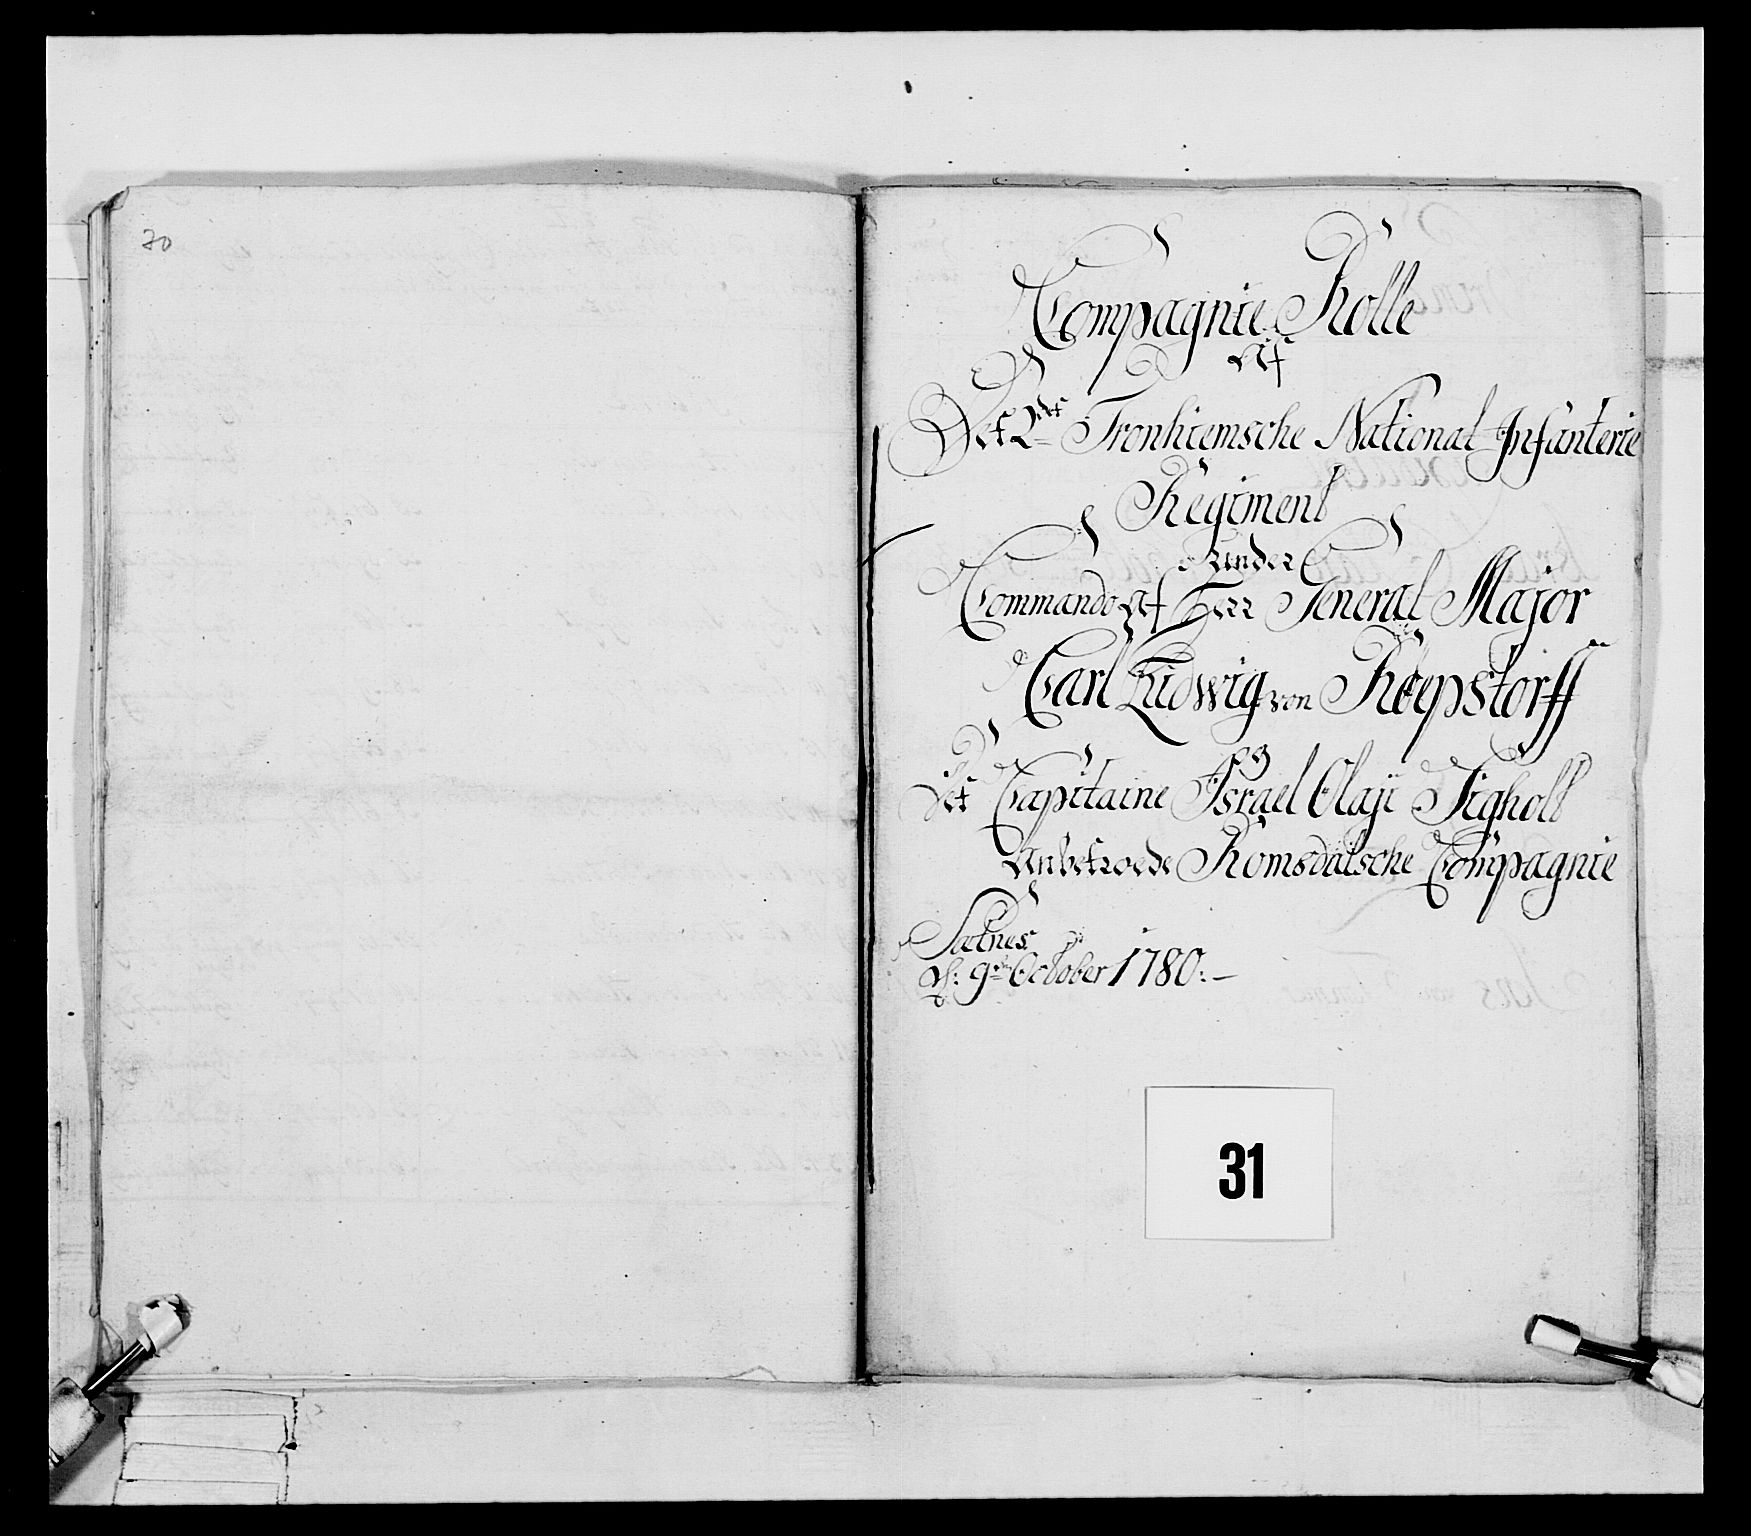 30
Compagnie Rolle
Af
Det 2det Tronhiemsche National Infanterie
Regiment
under
Commando af Herr General Major
Carl Ludwig von Röepstorff
og
Det Capitaine Israel Olaji Tigholt
Anbetroede Romsdalsche Compagnie
Sætnes
d: 9de October 1780:-
31